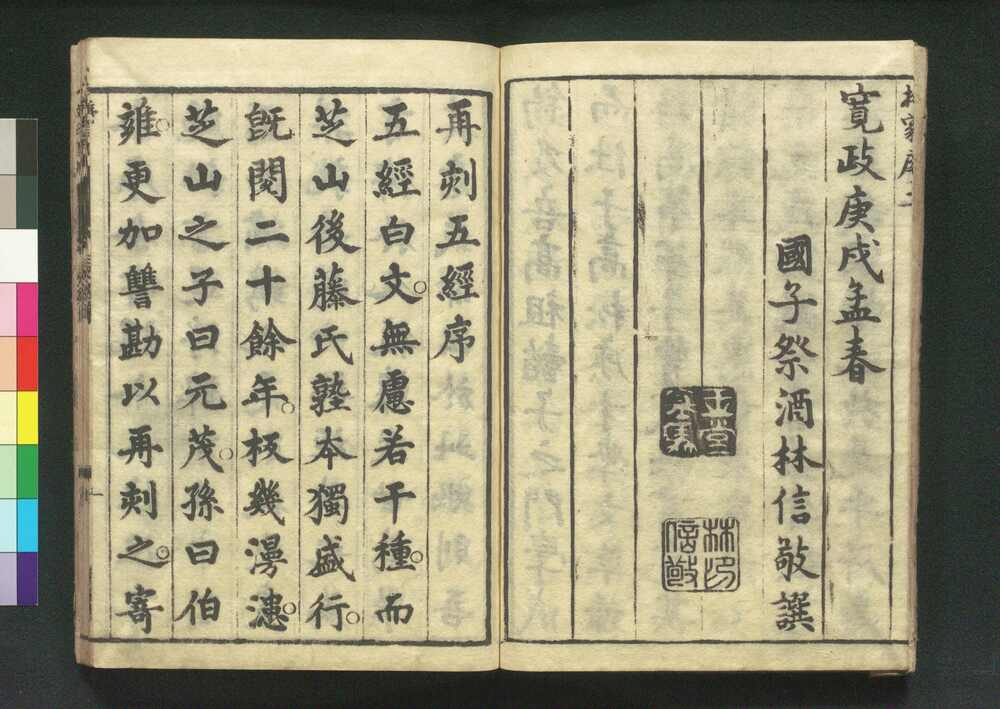 寛政庚戌孟春
國子祭酒林信敬撰
林印
信敬
再刻五經序
五經白文。無慮若干種。而
芝山後藤氏塾本獨盛行。
旣閱二十餘年。板幾漫漶。
芝山之子曰元茂。孫曰伯
雉。更加讐勘以再刻之。寄